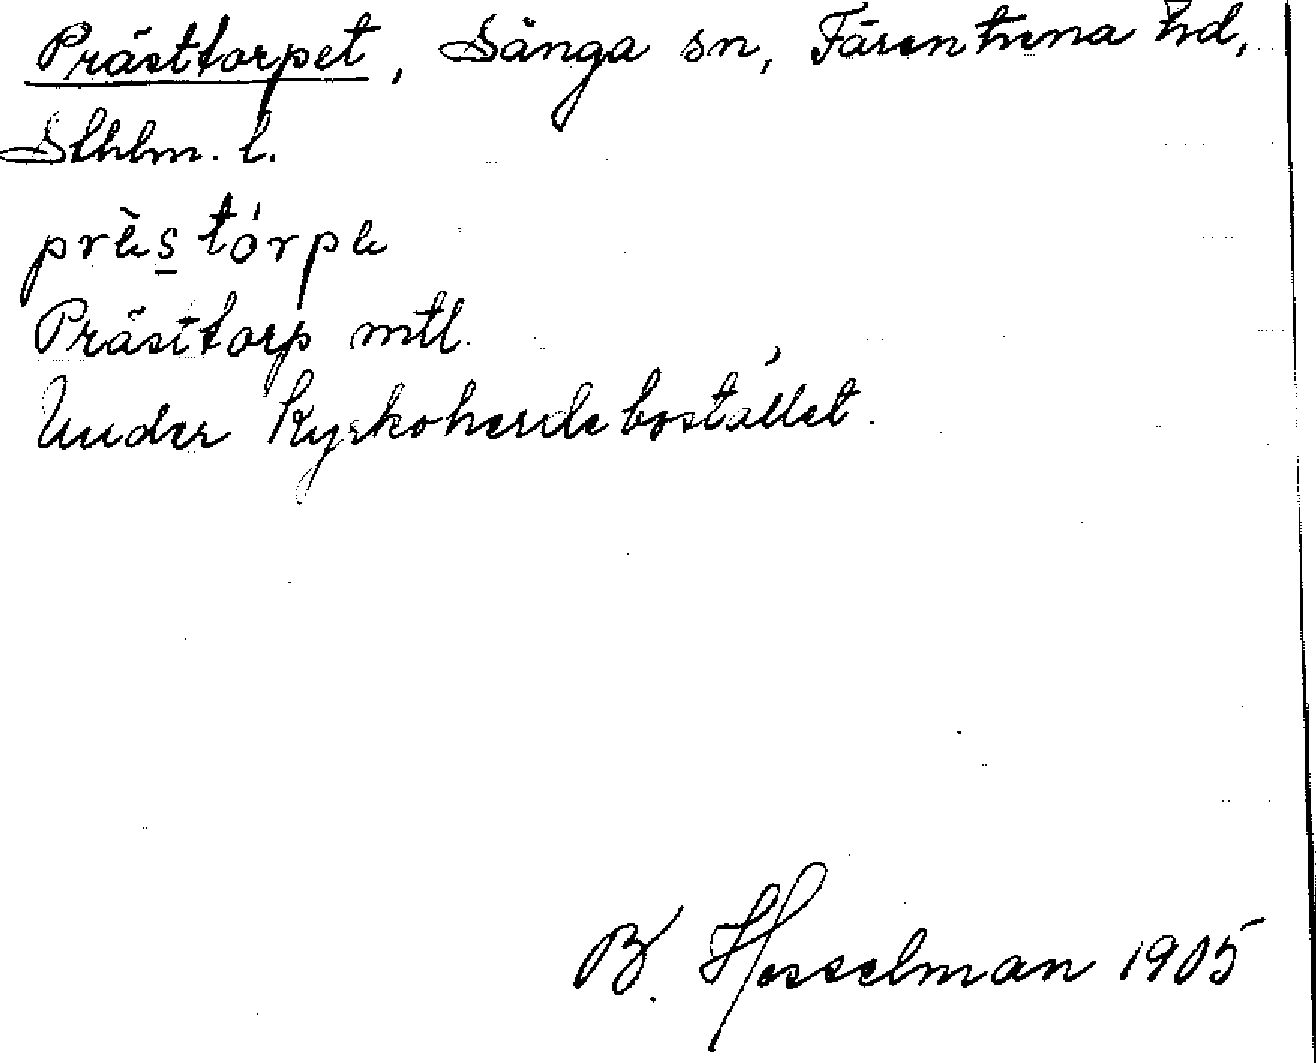 Prästtorpet, Sånga sn, Färentuna hd,
Sthlm. l.
Prästtorp mtl.
Under Kyrkoherdebostället.
B. Hesselman 1905